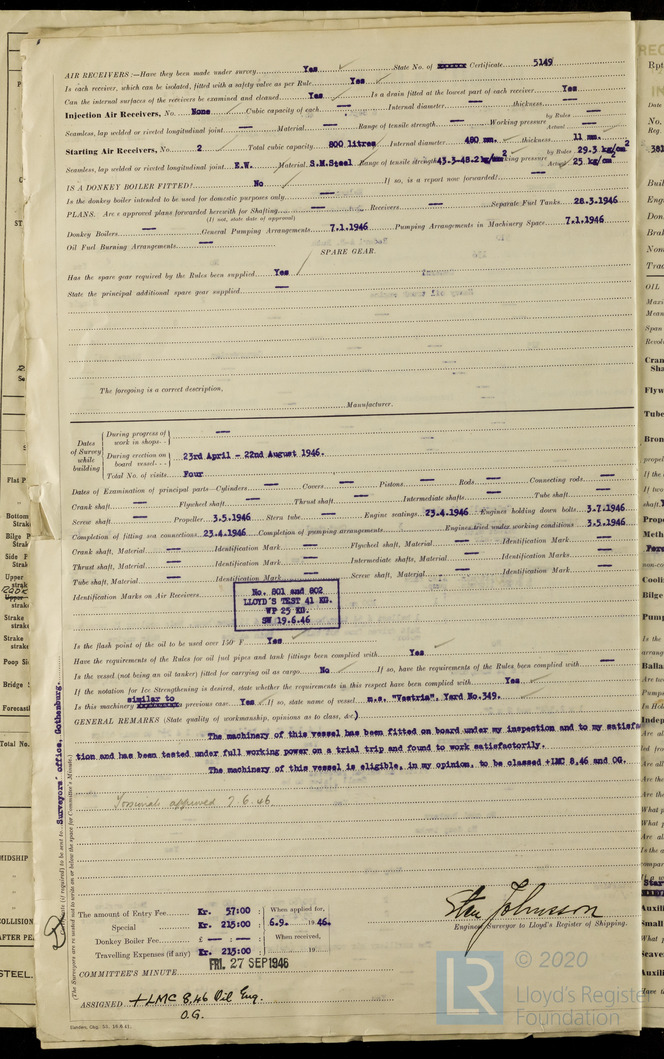 AIR RECEIVERS:—Have they been made under survey Yes State No. of xxxxxx Certificate 5149
Is each receiver, which can be isolated, fitted with a safety valve as per Rule Yes
Can the internal surfaces of the receivers be examined and cleaned Yes Is a drain fitted at the lowest part of each receiver Yes
Injection Air Receivers, No. None Cubic capacity of each — Internal diameter — thickness —
Seamless, lap welded or riveted longitudinal joint — Material — Range of tensile strength — Working pressure by Rules — Actual —
Starting Air Receivers, No. 2 Total cubic capacity 800 litres Internal diameter 480 mm. thickness 11 mm.
Seamless, lap welded or riveted longitudinal joint E.W. Material S.M.Steel Range of tensile strength 43.3-48.2kg/mm2 Working pressure by Rules 29.3 kg/cm2 Actual 25 kg/cm2
IS A DONKEY BOILER FITTED? No If so, is a report now forwarded? —
Is the donkey boiler intended to be used for domestic purposes only —
PLANS. Are approved plans forwarded herewith for Shafting — Receivers — Separate Fuel Tanks 28.3.1946
(If not, state date of approval)
Donkey Boilers — General Pumping Arrangements 7.1.1946 Pumping Arrangements in Machinery Space 7.1.1946
Oil Fuel Burning Arrangements —
SPARE GEAR.
Has the spare gear required by the Rules been supplied Yes
State the principal additional spare gear supplied —
The foregoing is a correct description,
Manufacturer.
Dates of Survey while building
During progress of work in shops - - —
During erection on board vessel - - - 23rd April - 22nd August 1946.
Total No. of visits Four
Dates of Examination of principal parts—Cylinders — Covers — Pistons — Rods — Connecting rods —
Crank shaft — Flywheel shaft — Thrust shaft — Intermediate shafts — Tube shaft —
Screw shaft — Propeller 3.5.1946 Stern tube — Engine seatings 23.4.1946 Engines holding down bolts 3.7.1946
Completion of fitting sea connections 23.4.1946 Completion of pumping arrangements Engines tried under working conditions 3.5.1946
Crank shaft, Material — Identification Mark — Flywheel shaft, Material — Identification Mark —
Thrust shaft, Material — Identification Mark — Intermediate shafts, Material — Identification Marks —
Tube shaft, Material — Identification Mark — Screw shaft, Material — Identification Mark —
Identification Marks on Air Receivers
No. 801 and 802
LLOYD'S TEST 41 KG.
WP 25 KG.
SW 19.6.46
Is the flash point of the oil to be used over 150° F. Yes
Have the requirements of the Rules for oil fuel pipes and tank fittings been complied with Yes
Is the vessel (not being an oil tanker) fitted for carrying oil as cargo No If so, have the requirements of the Rules been complied with —
If the notation for Ice Strengthening is desired, state whether the requirements in this respect have been complied with Yes
Is this machinery similar to xxxxxxxxx previous case. Yes If so, state name of vessel m.s. "Vestria", Yard No.349.
GENERAL REMARKS (State quality of workmanship, opinions as to class, &c.)
The machinery of this vessel has been fitted on board under my inspection and to my satisfa
tion and has been tested under full working power on a trial trip and found to work satisfactorily.
The machinery of this vessel is eligible, in my opinion, to be classed +LMC 8,46 and OG.
Torsional approved 7.6.46
The amount of Entry Fee Kr. 57:00
Special Kr. 215:00
Donkey Boiler Fee £ — : — :
Travelling Expenses (if any) Kr. 215:00
When applied for,
6.9. 1946.
When received,
19
Engineer Surveyor to Lloyd's Register of Shipping.
COMMITTEE'S MINUTE
FRI. 27 SEP 1946
ASSIGNED +LMC 8,46 Oil Eng.
O.G.
Surveyors' office, Gothenburg.
(The Surveyors are requested not to write on or below the space for Committee's Minute.)
LR
© 2020
Lloyd's Register
Foundation